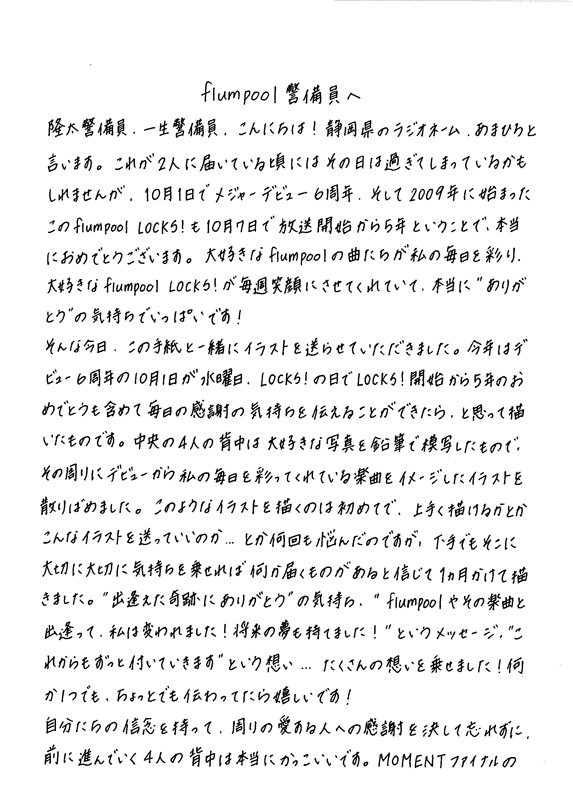 flumpool警備員へ
隆太警備員、一生警備員、こんにちは！静岡県のラジオネーム、あまひろと
言います。これが2人に届いている頃にはその日は過ぎてしまっているかも
しれませんが、10月1日でメジャーデビュー6周年、そして2009年に始まった
このflumpool LOCKS!も10月7日で放送開始から5年ということで、本当
におめでとうございます。大好きなflumpoolの曲たちが私の毎日を彩り、
大好きなflumpool LOCKS!が毎週笑顔にさせてくれていて、本当に"ありが
とう"の気持ちでいっぱいです！
そんな今日、この手紙と一緒にイラストを送らせていただきました。今年はデ
ビュー6周年の10月1日が水曜日、LOCKS!の日でLOCKS!開始から5年のお
めでとうも含めて毎日の感謝の気持ちを伝えることができたら、と思って描
いたものです。中央の4人の背中は大好きな写真を鉛筆で模写したもので、
その周りにデビューから私の毎日を彩ってくれている楽曲をイメージしたイラストを
散りばめました。このようなイラストを描くのは初めてで、上手く描けるかとか
こんなイラストを送っていいのか…とか何回も悩んだのですが、下手でもそこに
大切に大切に気持ちを乗せれば何か届くものがあると信じて1ヵ月かけて描
きました。"出逢えた奇跡にありがとう"の気持ち、"flumpoolやその楽曲と
出逢って、私は変われました！将来の夢も持てました！"というメッセージ、"こ
れからもずっと付いていきます"という想い…たくさんの想いを乗せました！何
か1つでも、ちょっとでも伝わってたら嬉しいです！
自分たちの信念を持って、周りの愛ある人への感謝を決して忘れずに、
前に進んでいく4人の背中は本当にかっこいいです。MOMENTファイナルの